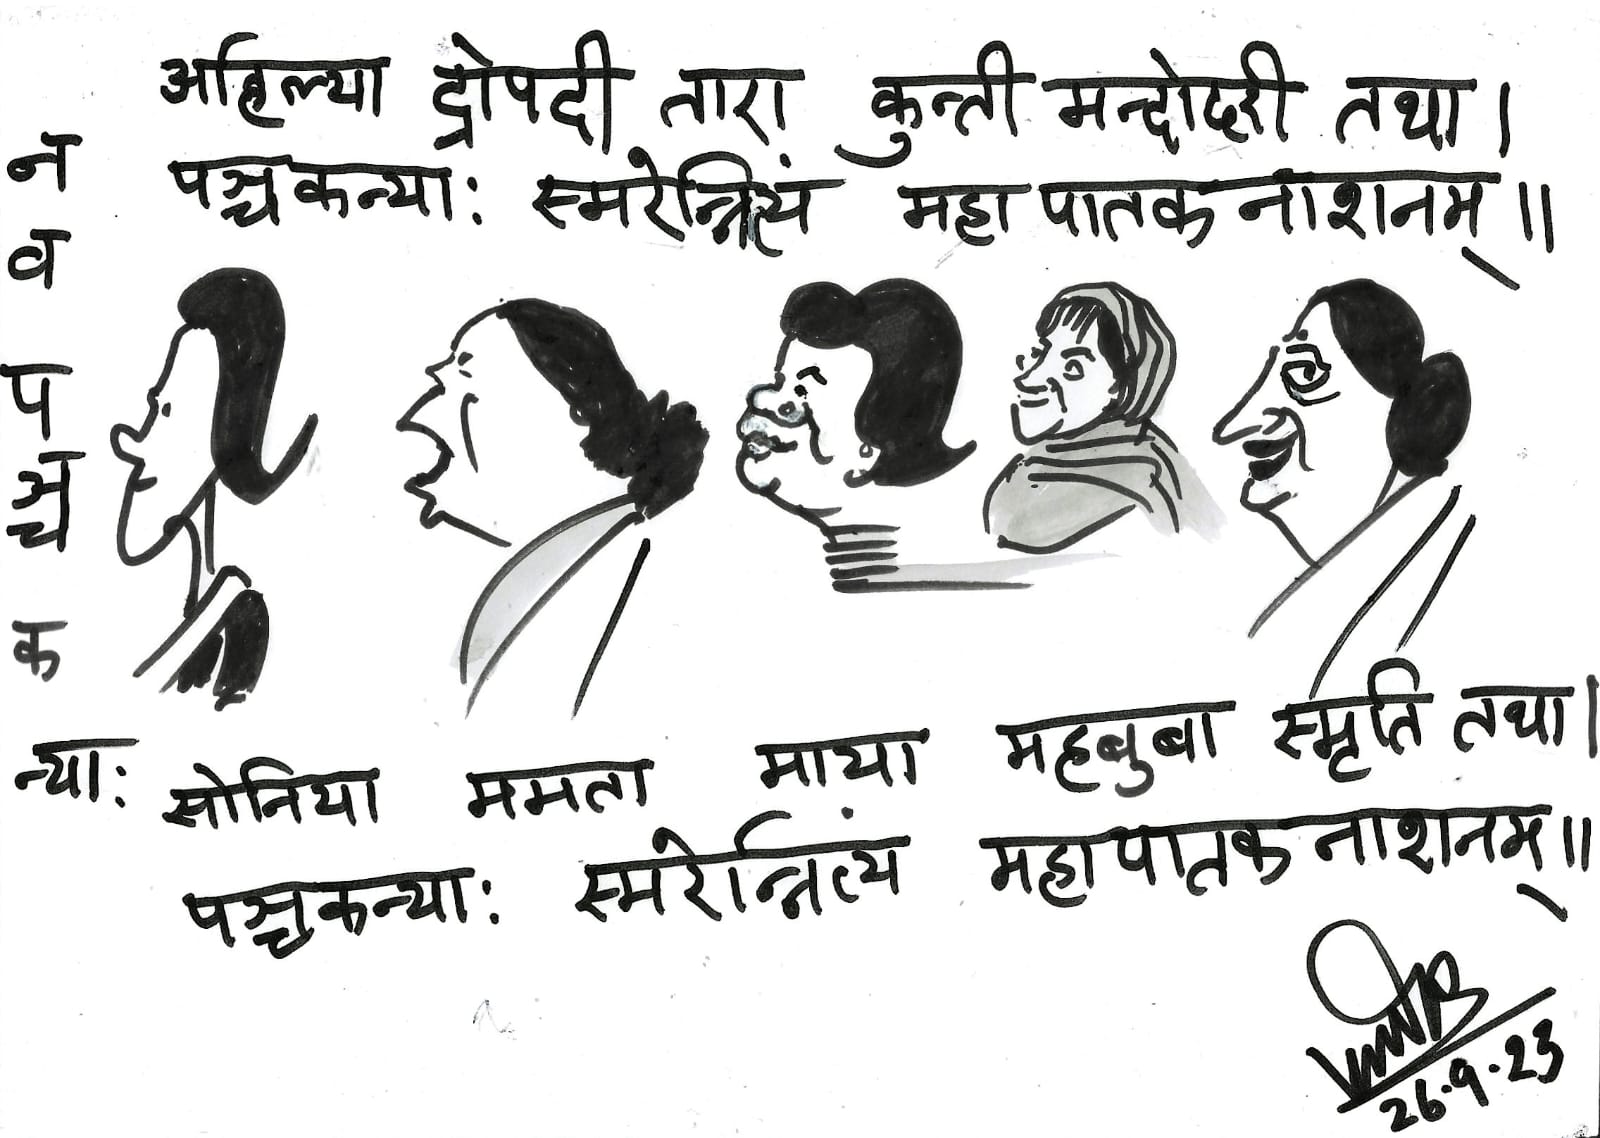 अहिल्या द्रोपदी तारा कुन्ती मन्दोदरी तथा।
पञ्चकन्याः स्मरेन्नित्यं महापातक नाशनम्॥
न
व
प
ञ्च
क
न्याः
सोनिया ममता माया महबुबा स्मृति तथा।
पञ्चकन्याः स्मरेन्नित्यं महापातक नाशनम्॥
26.9.23